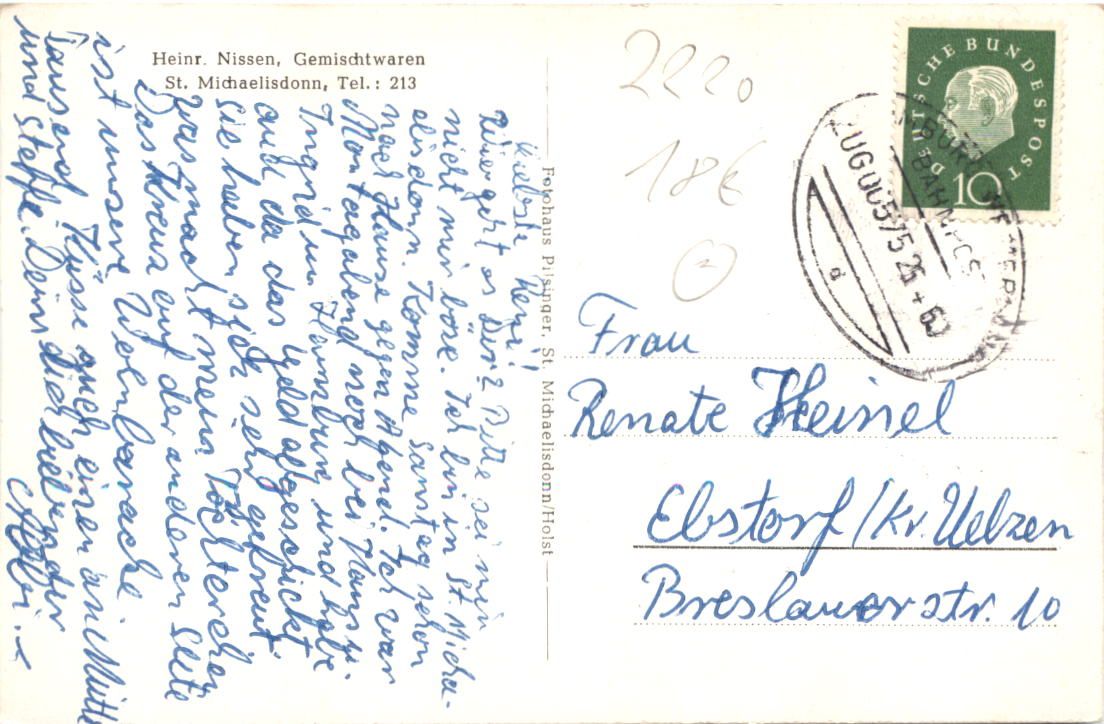 Heinr. Nissen, Gemischtwaren
St. Michaelisdonn, Tel.: 213
Liebste
Wie geht es Dir? Bitte sei mir
nicht mir böse. Ich bin in St. Micha-
elisdonn. Komme Samstag schon
nach Hause gegen Abend. Ich war
Montagabend noch bei
Ingrid in Hamburg und habe
auch da das Geld abgeschickt
sie haben sich sehr gefreut
Was macht mein Töchterchen
Das Kreuz auf der anderen Seite
ist unsere Wohnbaracke
Tausend Küsse auch einen an Mutti
und Steffe. Dein dich liebender
Fotohaus Pilsinger, St. Michaelisdonn/Holst
2220
18€
DEUTSCHE BUNDESPOST
10
BAHNPOST
ZUG
d
Frau
Renate Heinel
Ebstorf/Kr. Uelzen
Breslauerstr. 10